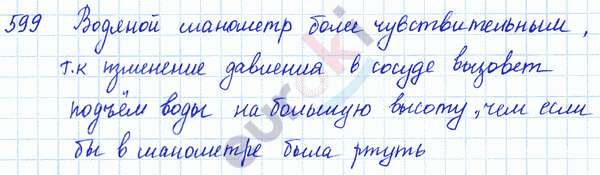 599 Водяной манометр более чувствительным,
т.к изменение давления в сосуде вызовет
подъём воды на большую высоту, чем если
бы в манометре была ртуть
euroki